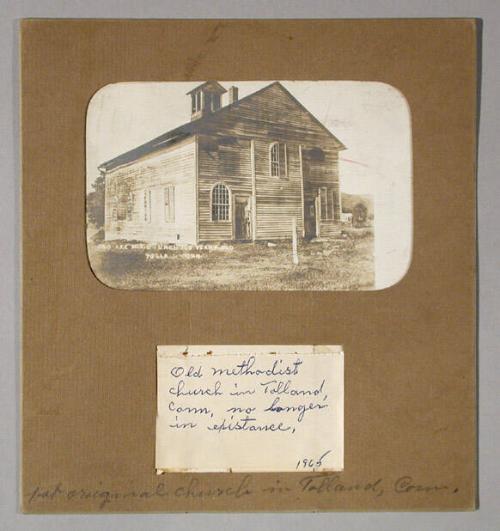 TOLLAND CONN.
Old methodist
church in Tolland,
Conn, no longer
in existance,
1965
1st original church in Tolland, Conn.